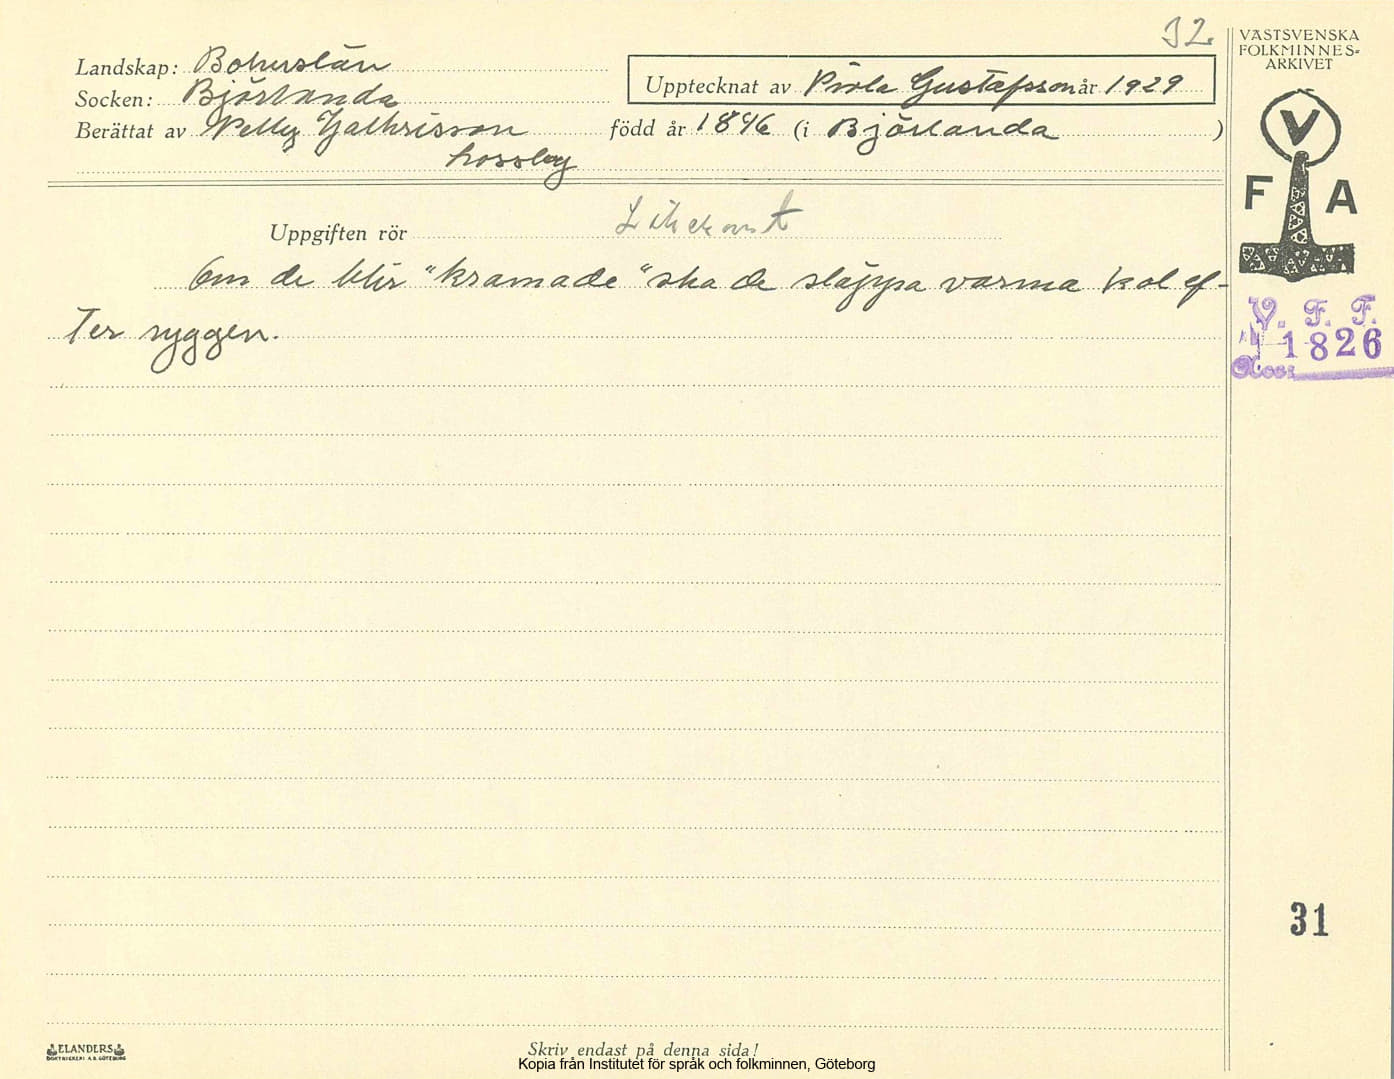 32.
VÄSTSVENSKA
FOLKMINNES-
ARKIVET
Landskap: Bohuslän
Upptecknat av Viola Gustafsson år 1929
Socken: Björlanda
Berättat av Pelly född år 1846 (i Björlanda)
kossby
V
F A
Uppgiften rör Läkekonst
Om de blir "kramade" ska de släppa varma kol ef-
ter ryggen.
V. F. F.
1826
31
ELANDERS
BOKTRYCKERI A.B. GÖTEBORG
Skriv endast på denna sida!
Kopia från Institutet för språk och folkminnen, Göteborg